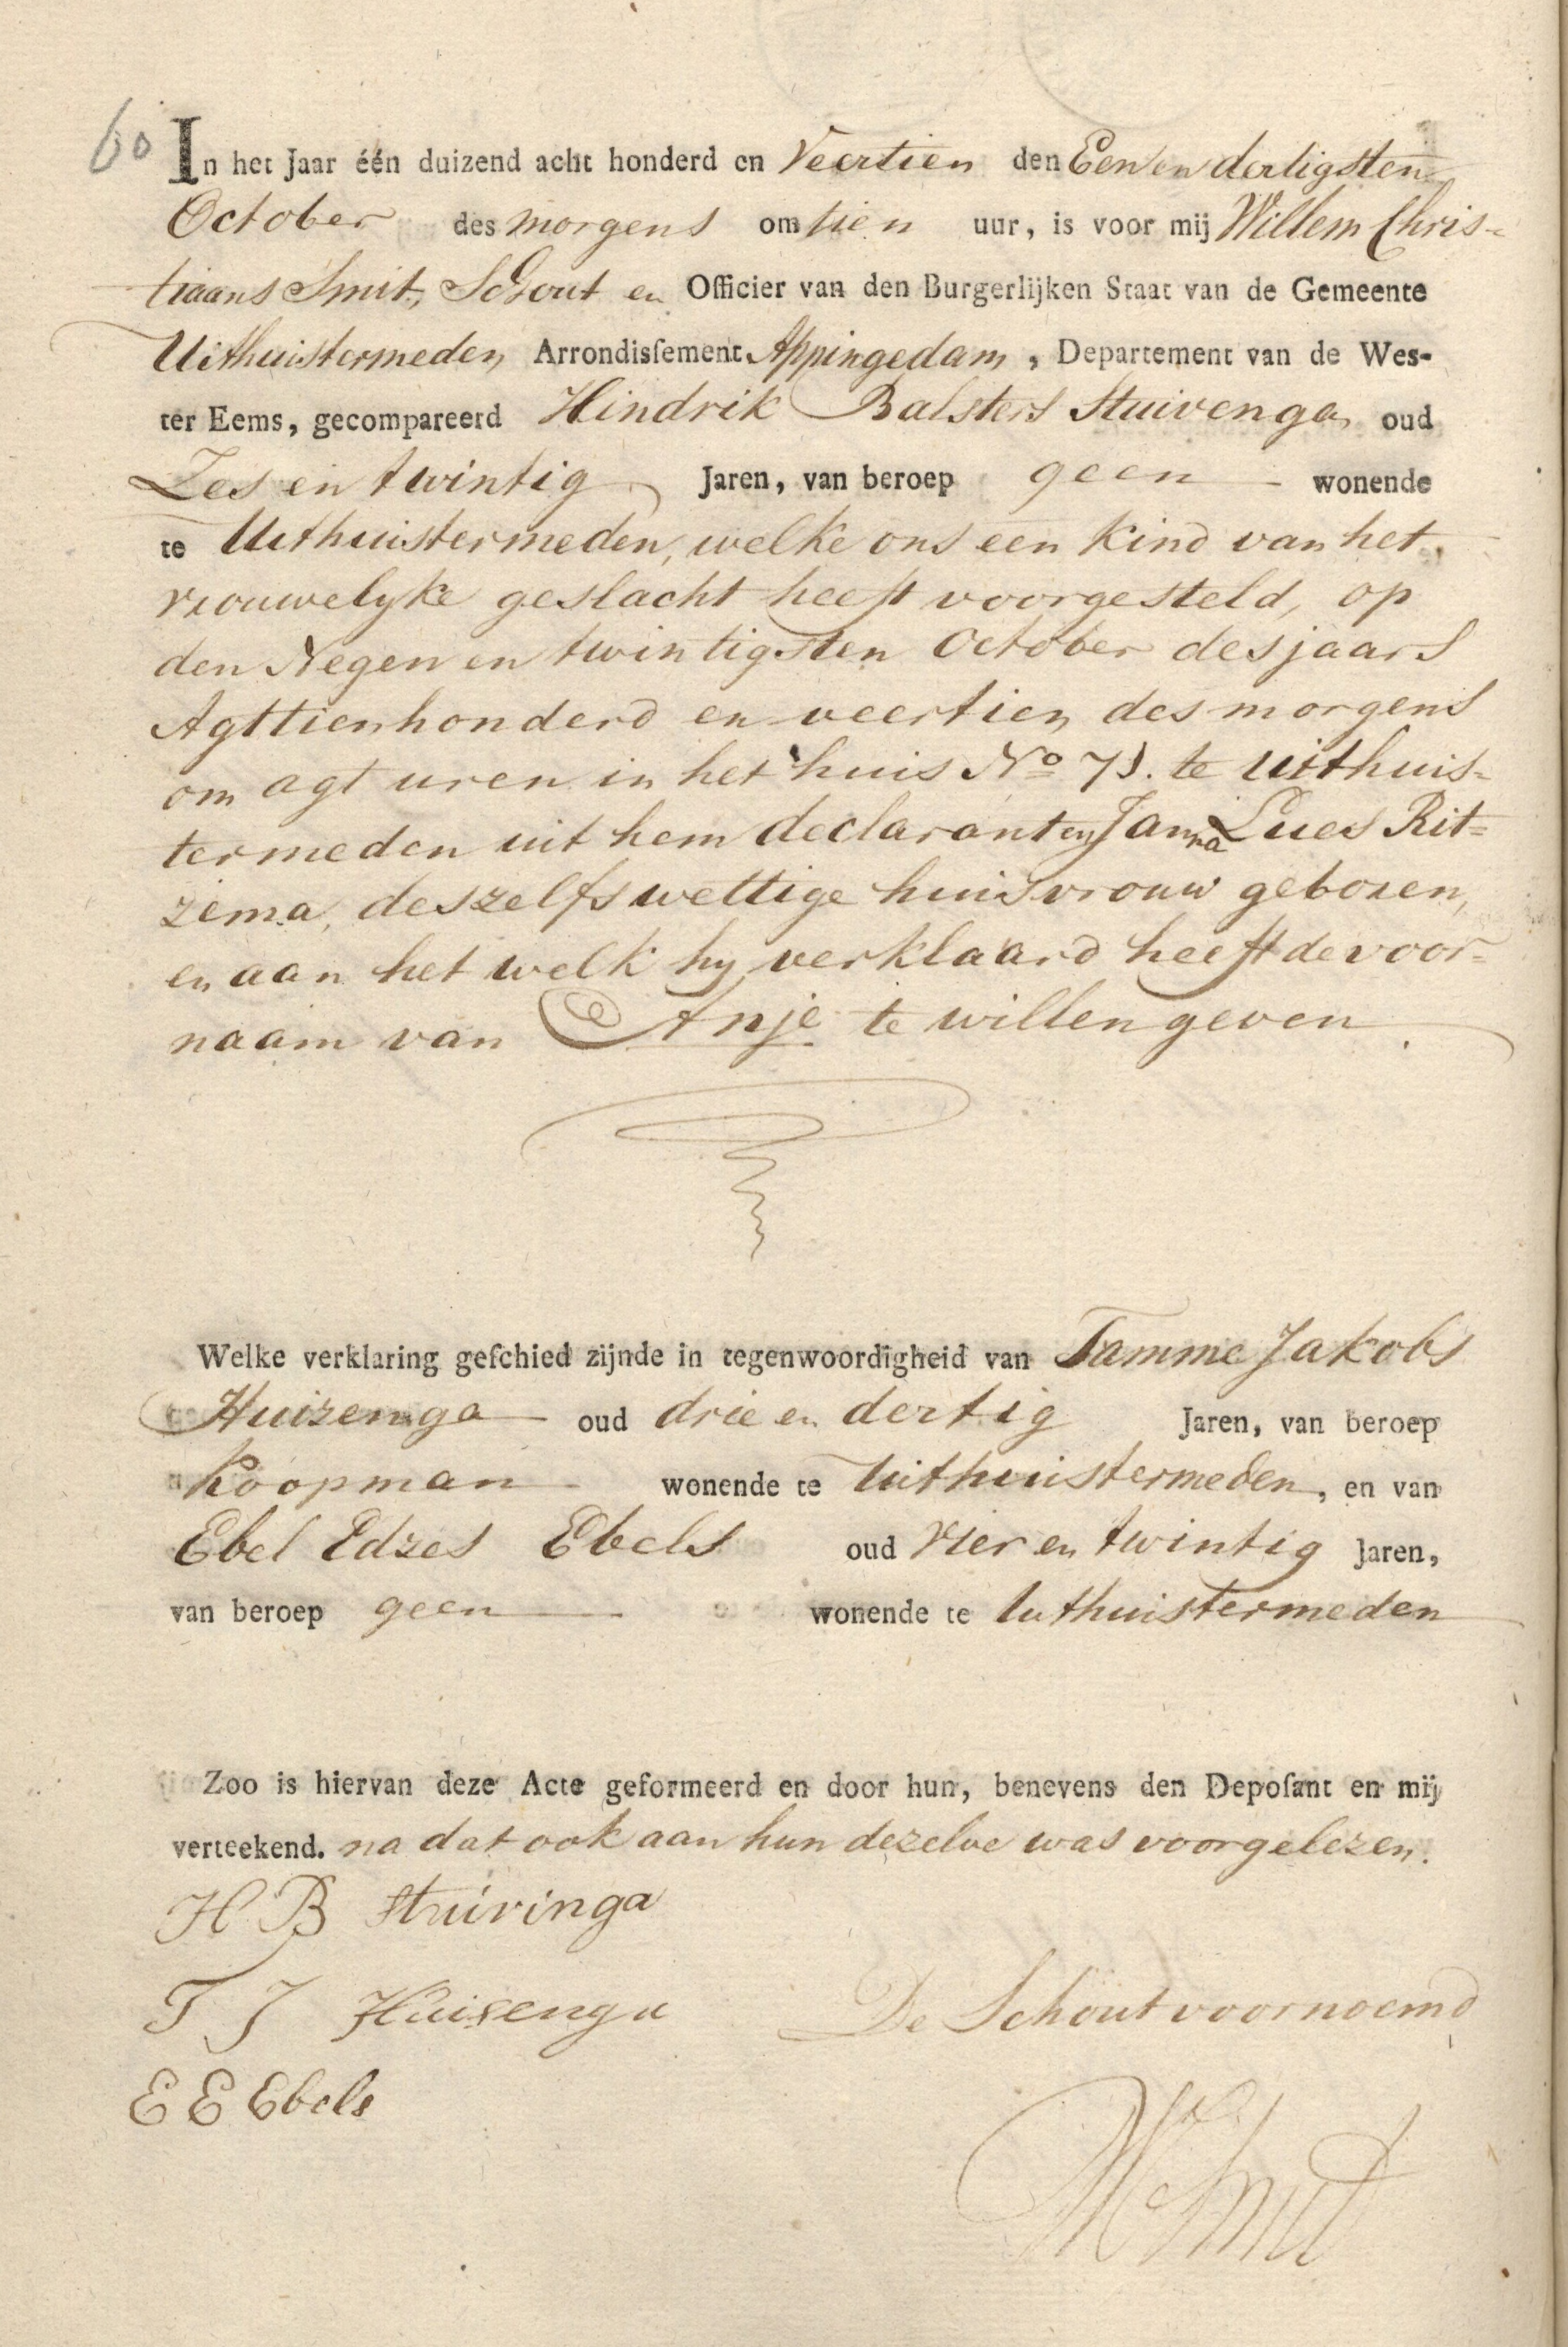 60 In het Jaar één duizend acht honderd en Veertien den Een en dertigsten
October des morgens om tien uur, is voor mij Willem Chris-
tiaans Smit, Schout en Officier van den Burgerlijken Staat van de Gemeente
Uithuistermeden Arrondisſement Appingedam, Departement van de Wes-
ter Eems, gecompareerd Hindrik Balsters Stuivenga oud
Zes en twintig Jaren, van beroep geen - wonende
te Uithuistermeden, welke ons een kind van het
vrouwelyke geslacht heeft voorgesteld, op
den Negen en twintigsten October des jaars
Agttienhonderd en veertien des morgens
om agt uren in het huis No. te Uithuis-
termeden uit hem declarant en Janna Lues Rit=
zema, deszelfs wettige huisvrouw geboren,
en aan het welk hy verklaard heeft de voor=
naam van Anje te willen geven.
Welke verklaring geſchied zijnde in tegenwoordigheid van Tamme Jakobs
Huizenga oud drie en dertig Jaren, van beroep
Koopman wonende te Uithuistermeden, en van
Ebel Edzes Ebels oud Vier en twintig Jaren,
van beroep geen wonende te Uithuistermeden
Zoo is hiervan deze Acte geformeerd en door hun, benevens den Depoſant en mij
verteekend. na dat ook aan hun dezelve was voorgelezen.
H B Stuivinga
T J Huisenga
De Schout voornoemd
E E Ebels
W C Smit